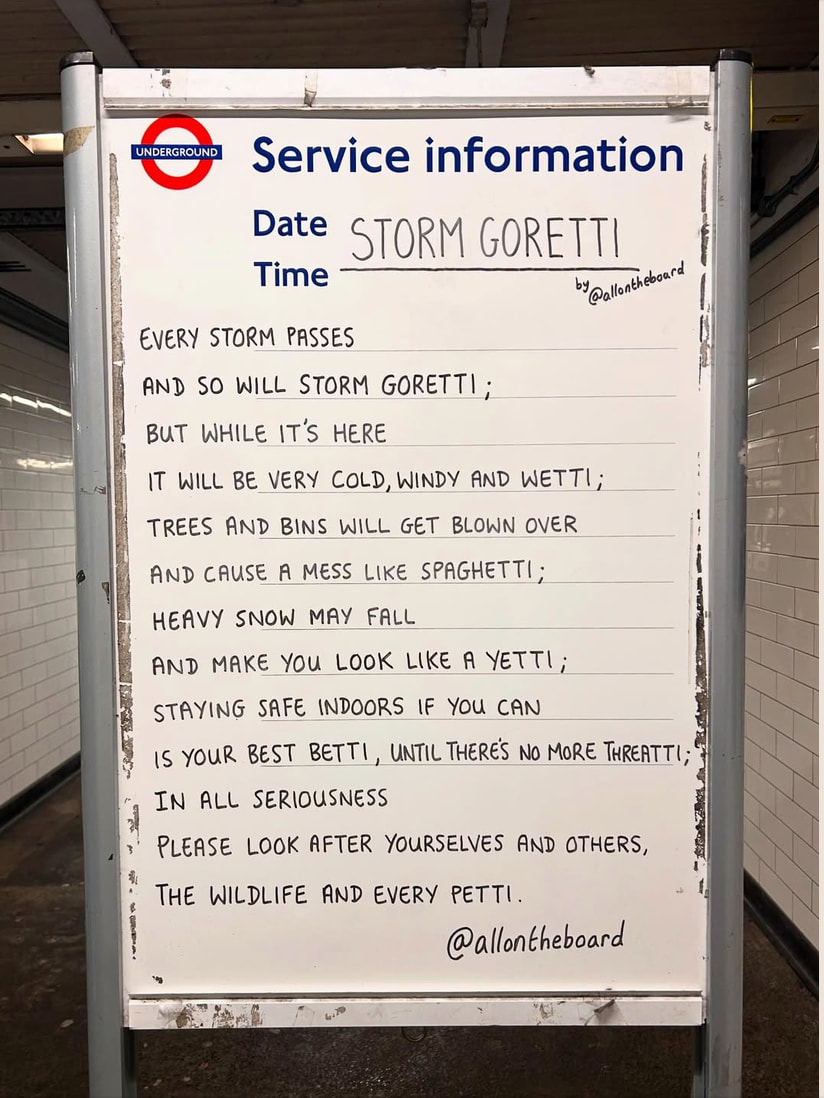 UNDERGROUND
Service information
Date
STORM GORETTI
Time
by @allontheboard
EVERY STORM PASSES
AND SO WILL STORM GORETTI;
BUT WHILE IT'S HERE
IT WILL BE VERY COLD, WINDY AND WETTI;
TREES AND BINS WILL GET BLOWN OVER
AND CAUSE A MESS LIKE SPAGHETTI;
HEAVY SNOW MAY FALL
AND MAKE YOU LOOK LIKE A YETTI;
STAYING SAFE INDOORS IF YOU CAN
IS YOUR BEST BETTI, UNTIL THERE'S NO MORE THREATTI;
IN ALL SERIOUSNESS
PLEASE LOOK AFTER YOURSELVES AND OTHERS,
THE WILDLIFE AND EVERY PETTI.
@allontheboard